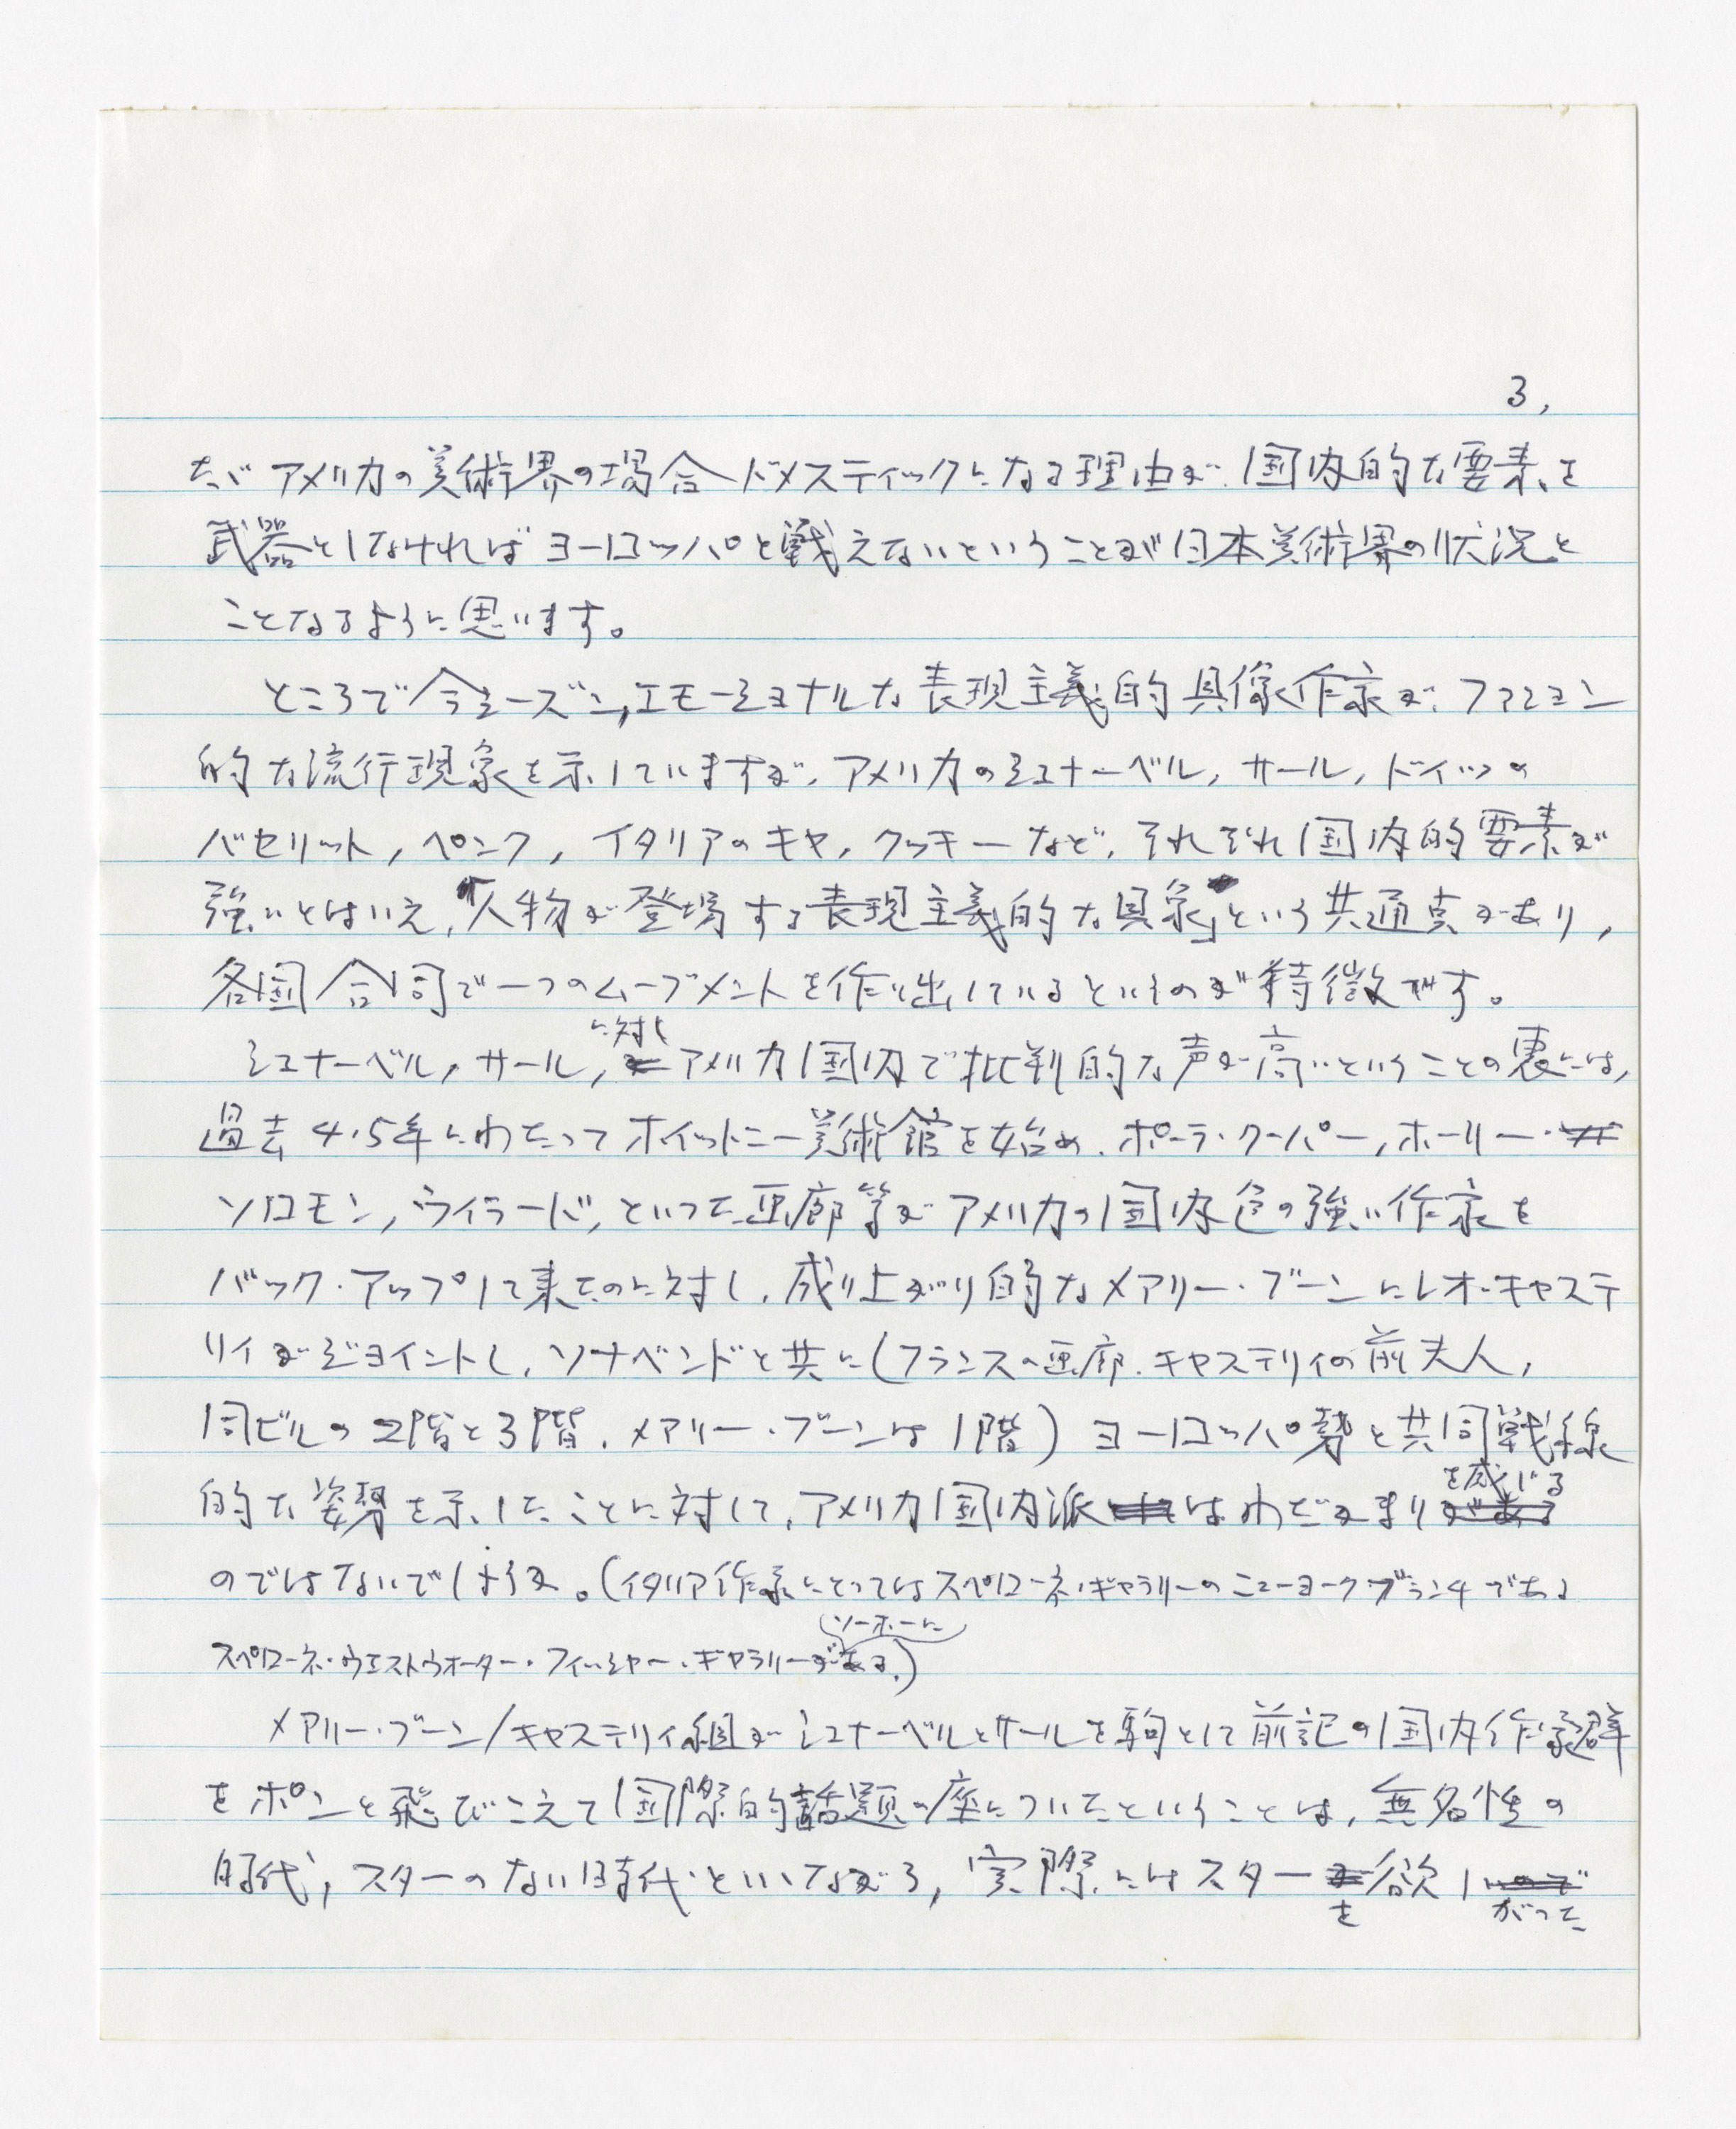 3,
ただアメリカの美術界の場合ドメスティックになる理由が、国内的な要素を
武器としなければヨーロッパと戦えないということが日本美術界の状況と
ことなるように思います。
ところで今シーズン,エモーショナルな表現主義的具像作家が、ファション
的な流行現象を示していますが、アメリカのシュナーベル,サール,ドイツの
バセリット,ペンク,イタリアのキヤ,クッキーなど、それぞれ国内的要素が
強いとはいえ、「人物が登場する表現主義的な具象」という共通点があり,
各国合同で一つのムーブメントを作り出しているというのが特徴です。
シュナーベル,サール,に対しアメリカ国内で批判的な声が高いということの裏には,
過去4.5年にわたってホイットニー美術館を始め、ポーラ・クーパー,ホーリー・
ソロモン,ウイラード,といった画廊等がアメリカの国内色の強い作家を
バック・アップして来たのに対し、成り上がり的なメアリー・ブーンにレオ・キャステ
リイがジョイントし、ソナベンドと共に(フランスの画廊、キャステリイの前夫人,
同ビルの2階と3階、メアリー・ブーンは1階)ヨーロッパ勢と共同戦線
的な姿勢を示したことに対して、アメリカ国内派はわだかまりを感じる
のではないでしょうか。(イタリア作家にとってはスペローネ・ギャラリーのニューヨーク・ブランチである
スペローネ・ウエストウオーター・フィッシャー・ギャラリーがソーホーにある.)
メアリー・ブーン/キャステリイ組がシュナーベルとサールを駒として前記の国内作家群
をポンと飛びこえて国際的話題の座についたということは,無名性の
時代,スターのない時代といいながら,実際にはスターを欲しがった